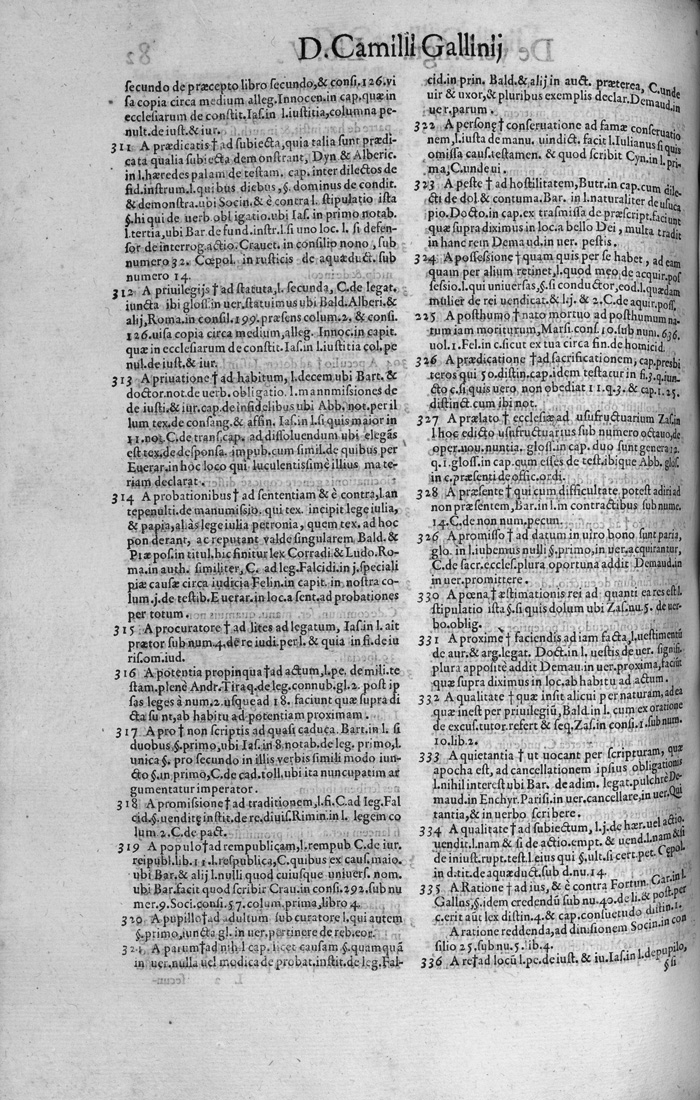 D. Camilli Gallinij
secundo de præcepto libro secundo, & consi. 126. vi
sa copia circa medium alleg. Innocen. in cap. quæ in
ecclesiarum de constit. Ias. in l. iustitia, columna pe-
nult. de iust. & iur.
311 A prædicatis † ad subiecta, quia talia sunt prædi-
cata qualia subiecta demonstrant, Dyn & Alberic.
in l. hæredes palam de testam. cap. inter dilectos de
fid. instrum. l. quibus diebus, §. dominus de condit.
& demonstra. ubi Socin. & è contra l. stipulatio ista
§. hi qui de uerb. obligatio. ubi Ias. in primo notab.
l. tertia, ubi Bar. de fund. instr. l. si uno loc. l. si defen-
sor de interrog. actio. Crauet. in consilio nono, sub
numero 32. Cœpol. in rusticis de aquæduct. sub
numero 14.
312 A priuilegijs † ad statuta, l. secunda, C. de legat.
iuncta ibi gloss. in uer. statuimus ubi Bald. Alberi. &
alij, Roma. in consil. 199. præsens colum. 2, & consi.
126. uisa copia circa medium, alleg. Innoc. in capit.
quæ in ecclesiarum de constit. Ias. in l. iustitia col. pe
nul. de iust. & iur.
313 A priuatione † ad habitum, l. decem ubi Bart. &
doctor. not. de uerb. obligatio. l. mannmissiones de
de iusti. & iur. cap. de infidelibus ubi Abb. not. per il
lum tex. de consang. & affin. Ias. in l. si quis maior in
11. not. C. de trans. cap. ad dissoluendum ubi elegãs
est tex. de desponsa. impub. cum simil. de quibus per
Euerar. in hoc loco qui luculentissime illius mate-
riam declarat.
314 A probationibus † ad sententiam & è contra, l. an
tepenulti. de manumissio. qui tex. incipit lege iulia,
& papia, aliàs lege iulia petronia, quem tex. ad hoc
ponderant, ac reputant valde singularem, Bald. &
Piæ pos. in titul. hic finitur lex Corradi & Ludo. Ro-
ma. in auth. similiter, C. ad leg. Falcid. in j. speciali
piæ causæ circa iudicia Felin. in capit. in nostra co-
lum. j. de testib. Euerar. in loc. a sent. ad probationes
per totum.
315 A procuratore † ad lites ad legatum, Ias. in l. ait
prætor sub num. 4. de re iudi. per l. & quia in fi. de iu
ris. om. iud.
316 A potentia propinqua † ad actum, l. pe. de mili. te
stam. plenè Andr. Tiraq. de leg. connub. gl. 2. post ip
sas leges à num. 2. usque ad 18. faciunt quæ supra di
cta sunt, ab habitu ad potentiam proximam.
317 A pro † non scriptis ad quasi caduca. Bart. in l. si
duobus §. primo, ubi Ias. in 8. notab. de leg. primo, l.
unica §. pro secundo in illis verbis simili modo iun-
cto §. in primo, C. de cad. toll. ubi ita nuncupatim ar
gumentatur imperator.
318 A promisione † ad traditionem, l. fi. C. ad leg. Fal
cid. §. uenditę instit. de re. diuis. Rimin. in l. legem co
lum 2. C. de pact.
319 A populo † ad rempublicam, l. rempub C. de iur.
reipubl. lib. 11. l. respublica, C. quibus ex caus. maio.
ubi Bar. & alij l. nullit quod cuiusque univers. nom.
ubi Bar. facit quod scribir Crau. in consi. 292. sub nu
mer. 9. Soci. consi. 57. colum. prima, libro 4.
320 A pupillo † ad adultum sub curatore l. qui autem
§. primo, iuncta gl. in uer. pertinere de reb. eor.
321 A parum † ad nihil cap. licet causam §. quamquã
in uer. nulla uel modica de probat. instit. de leg. Fal-
cid. in prin. Bald. & alij in auct. præterea, C. unde
uir & uxor, & pluribus exemplis declar. Demaud. in
uer. parum.
322 A personę † conseruatione ad famæ conseruatio
nem, l. iusta de manu. uindict. facit l. Iulianus si qui-
omissa caus. testamen. & quod scribit Cyn. in l. pri-
ma, C. unde ui.
323 A peste † ad hostilitatem, Butr. in cap. cum dile-
cti de dol & contuma. Bar. in l. naturaliter de usuca
pio. Docto. in cap. ex trasmissa de præscript. faciunt
quæ supra diximus in loc. a bello Dei, multa tradit
in hanc rem Demaud. in uer. pestis.
324 A possessione † quam quis per se habet, ad eam
quam per alium retinet, l. quod meo, de acquir. pos
sessio. l. qui uniuersas, §. si conductor, eod. l. quædam
mulier de rei uendicat. & l. j. & 2. C. de aquir. poss.
225 A posthumo † nato mortuo ad posthumum na-
tum iam moriturum, Marsi. cons. 10. sub num. 636.
uol. 1. Fel. in c. sicut ex tua circa fin. de homicid.
326 A prædicatione † ad sacrificationem, cap. presbi
teros qui 50. distin. cap. idem testatur in fi. 3. q. iun-
cto c. si quis uero non obediat 11. q. 3. & cap. 1. 25.
distinct. cum ibi not.
327 A prælato † ecclesiæ ad usufructuarium Zas. in
l hoc edicto usufructuarius sub numero octauo, de
oper. nou. nuntia. gloss. in cap. duo sunt genera 12.
q. 1. gloss. in cap. cum esses de test. ibique Abb. gloss.
in c. præsenti de offic. ordi.
328 A præsente † qui cum difficultate potest adiri ad
non præsentem, Bar. in l. in contractibus sub nume.
14. C. de non num. pecun.
326 A promisso † ad datum in uiro bono sunt paria,
glo. in l. iubemus nulli §. primo, in uer. acquirantur,
C. de sacr. eccles. plura oportuna addit Demaud. in
in uer. promittere.
330 A pœna † æstimationis rei ad quanti ea res est l.
stipulatio ista §. si quis dolum ubi Zas. nu. 5. de uer-
bo. oblig.
331 A proxime † faciendis ad iam facta, l. uestimentũ
de aur. & arg. legat. Doct. in l. uestis de uer. signifi.
plura appositè addit Demau. in uer. proxima, faciũt
quæ supra diximus in loc. ab habitu ad actum.
332 A qualitate † quæ insit alicui per naturam, ad ea
quæ inest per priuilegiũ, Bald. in l. cum ex oratione
de excus. tutor. refert & seq. Zas. in consi. 1. sub num.
10. lib. 2.
333 A quietantia † ut uocant per scripturam, quæ
apocha est, ad cancellationem ipsius obligationis
l. nihil interest ubi Bar. de adim. legat. pulchrè De-
maud. in Enchyr. Paris. in uer. cancellare, in uer. Qui
tantia, & in verbo scribere.
334 A qualitate † ad subiectum, l. j. de hær. uel actio.
uendit. l. nam & si de actio. empt. & uend. l. nam & si
de iniust. rupt. test. l. eius qui §. ult. si cert. pet. Cępol.
in d. tit. de aquæduct. sub d. nu. 14.
335 A Ratione † ad ius, & è contra Fortun. Gar. in l.
Gallus, §. idem credendũ sub nu. 40. de li. & post. per
c. erit aut lex distin. 4. & cap. consuetudo distin. 1.
A ratione reddenda, ad diuisionem Socin. in con
silio 25. sub nu. 5. lib. 4.
336 A re † ad locũ l. pe. de iust. & iu. Ias. in l. de pupilo,
§ si